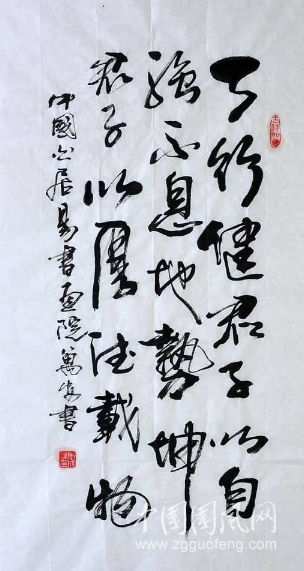 天行健君子以自
強不息地勢坤
君子以厚德載物
中國白居易書画院萬書
中国国风网
www.zgguofeng.com